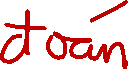 đoán